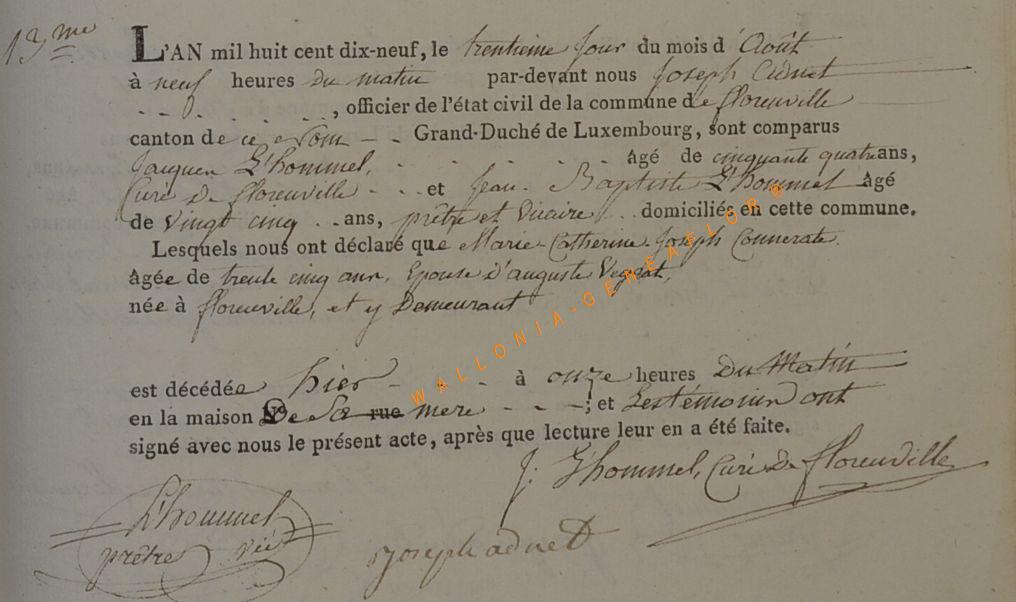 13me
L'AN mil huit cent dix-neuf, le trentieme Jour du mois d'Août
à neuf heures du matin par-devant nous Joseph Adnet
, officier de l'état civil de la commune de florenville
canton de ce nom Grand-Duché de Luxembourg, sont comparus
Jacques L'hommel, âgé de cinquante quatre ans,
Curé de florenville et Jean-Baptiste L'hommel Agé
de Vingt cinq ans, prêtre et Vicaire domiciliés en cette commune.
Lesquels nous ont déclaré que Marie-Catherine-Joseph Connerate
âgée de trente cinq ans, Epouse d'auguste
née à florenville, et y Demeurant
est décédée hier à onze heures Du Matin
en la maison De Sa rue mere ; et Les témoins ont
signé avec nous le présent acte, après que lecture leur en a été faite.
J: L'hommel, Curé De florenville
L'hommel
prêtre vic
joseph adnet
WALLONIA-GENEAFLORE